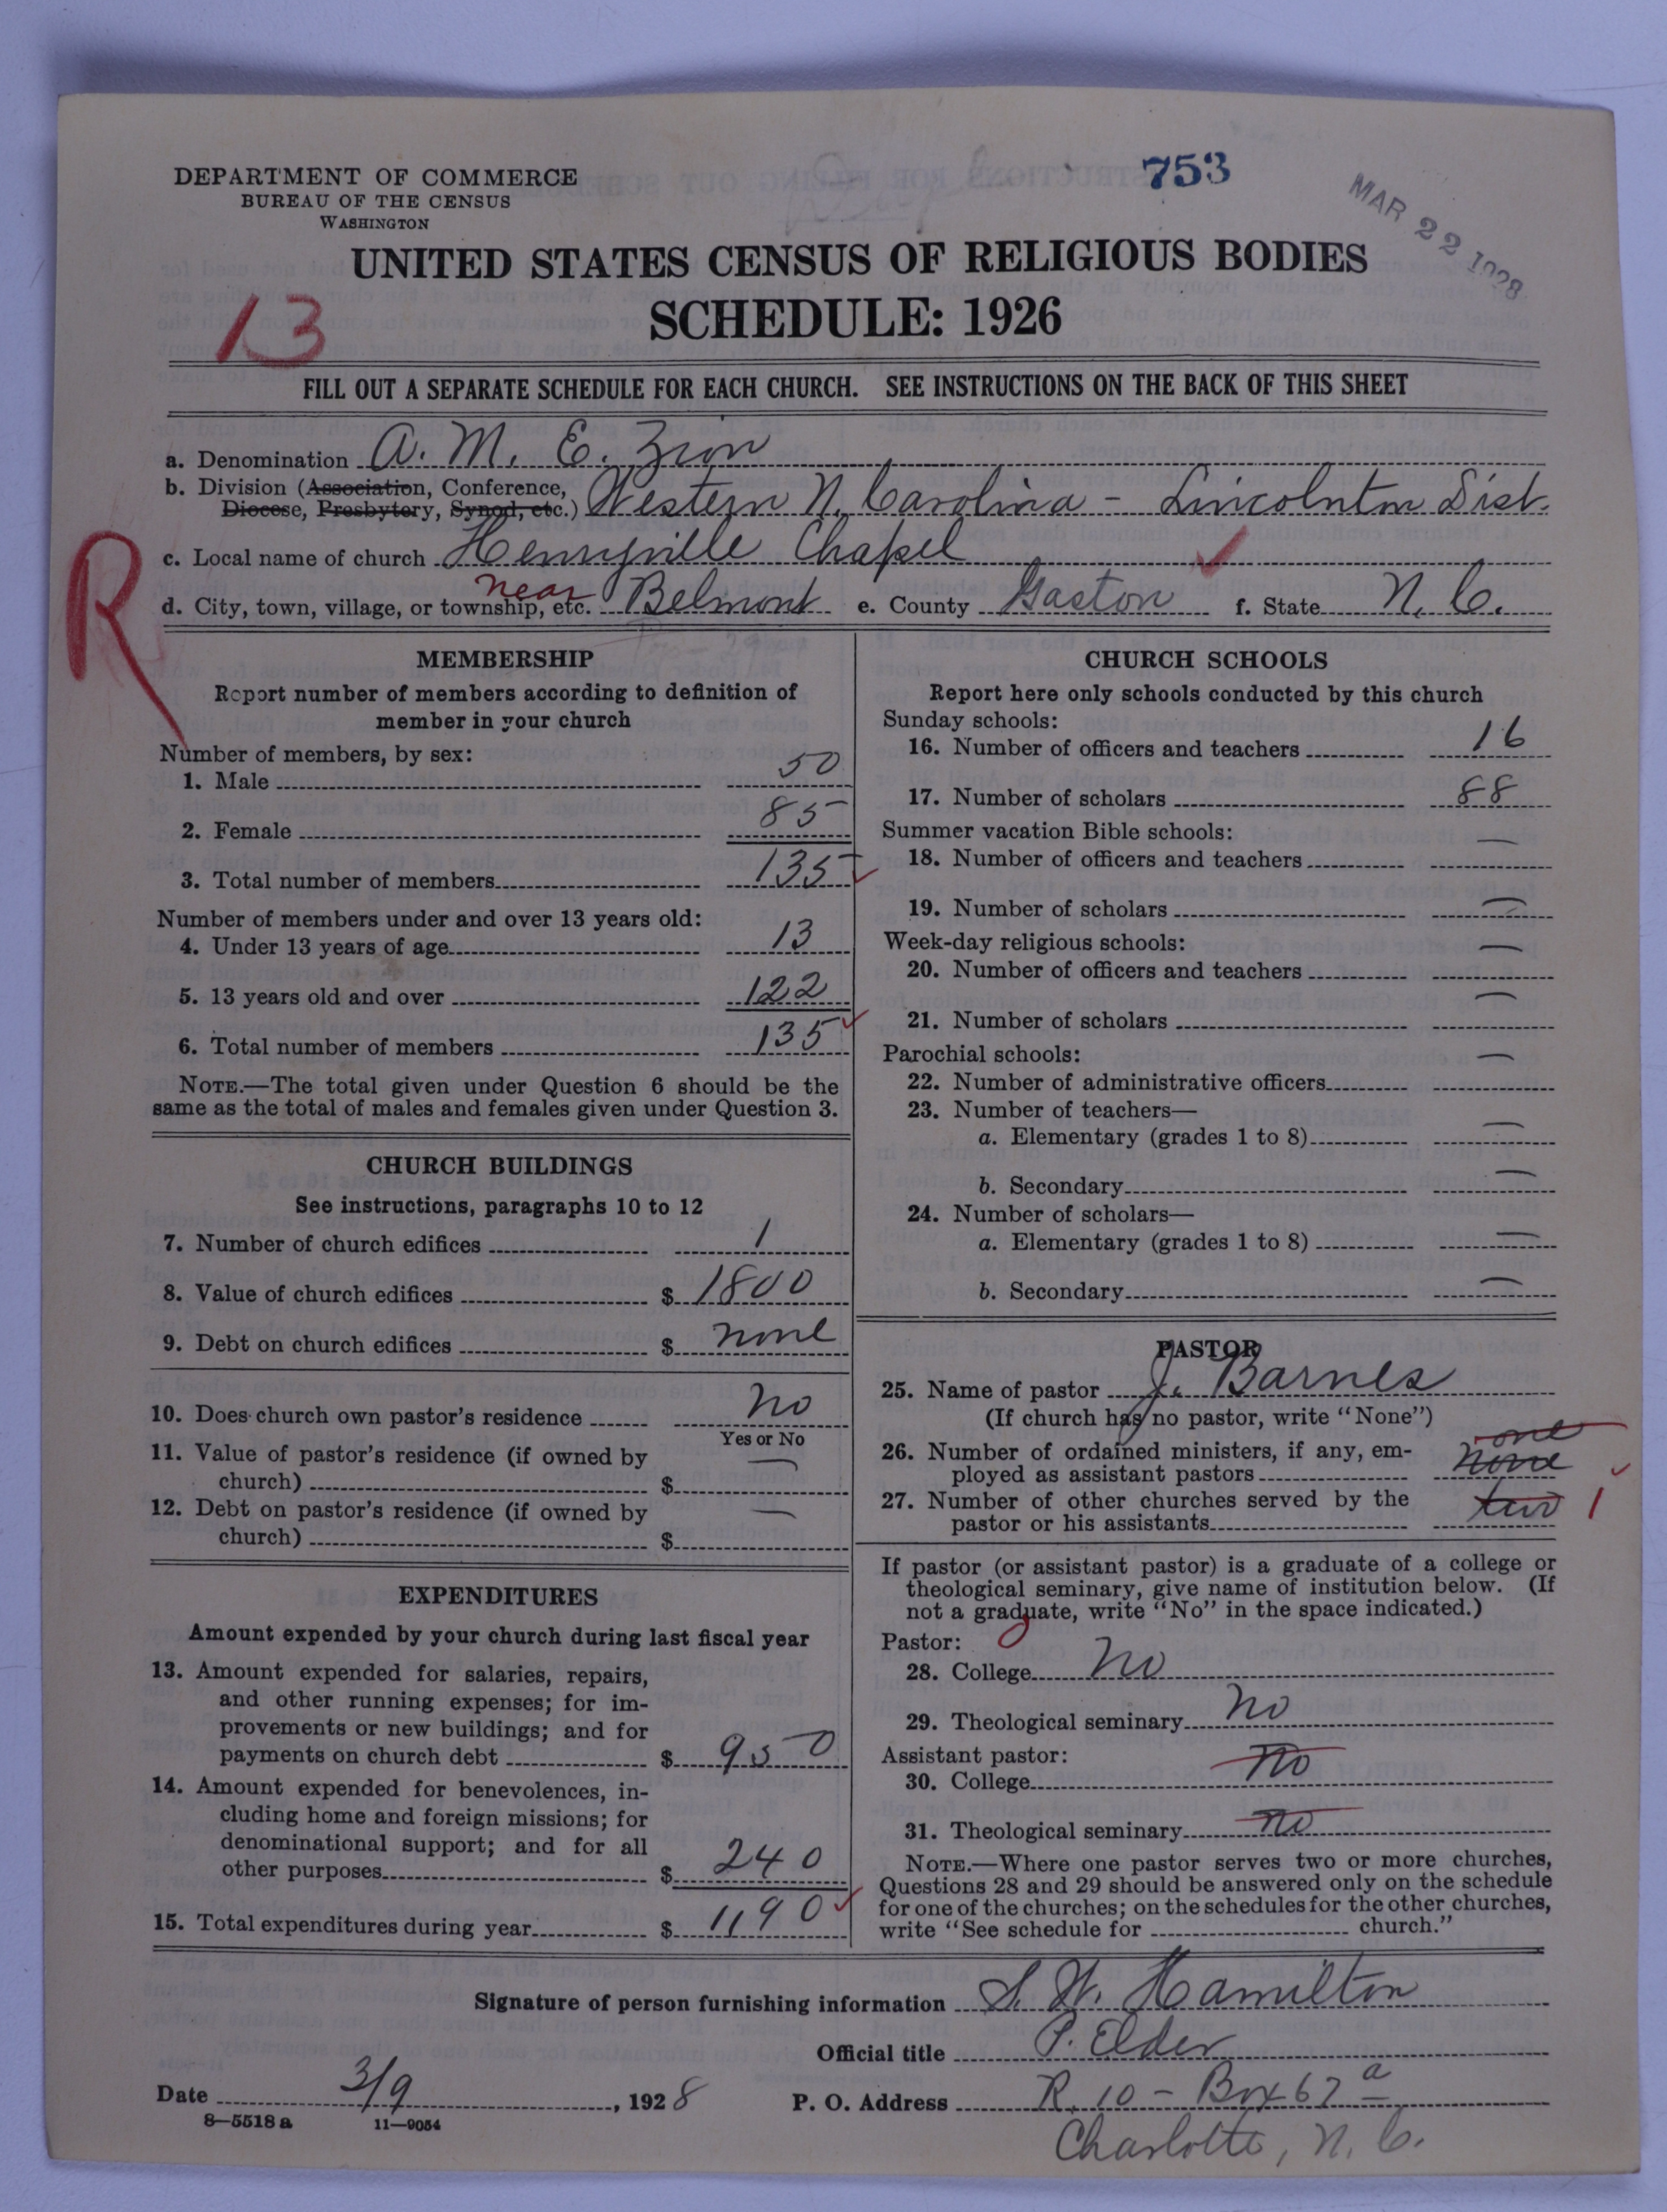 753
MAR 22 1928
DEPARTMENT OF COMMERCE
BUREAU OF THE CENSUS
WASHINGTON
UNITED STATES CENSUS OF RELIGIOUS BODIES
SCHEDULE: 1926
13
FILL OUT A SEPARATE SCHEDULE FOR EACH CHURCH. SEE INSTRUCTIONS ON THE BACK OF THIS SHEET
a. Denomination A. M. E. Zion
b. Division (Association, Conference, Diocese, Presbytery, Synod, etc.) Western N. Carolina - Lincolnton Dist.
c. Local name of church Henryville Chapel
R
d. City, town, village, or township, etc. near Belmont e. County Gaston f. State N. C.
MEMBERSHIP
Report number of members according to definition of
member in your church
Number of members, by sex:
1. Male 50
2. Female 85
3. Total number of members 135
Number of members under and over 13 years old:
4. Under 13 years of age 13
5. 13 years old and over 122
6. Total number of members 135
NOTE.—The total given under Question 6 should be the
same as the total of males and females given under Question 3.
CHURCH BUILDINGS
See instructions, paragraphs 10 to 12
7. Number of church edifices 1
8. Value of church edifices $ 1800
9. Debt on church edifices $ none
10. Does church own pastor's residence No
Yes or No
11. Value of pastor's residence (if owned by
church) $ —
12. Debt on pastor's residence (if owned by
church) $ —
EXPENDITURES
Amount expended by your church during last fiscal year
13. Amount expended for salaries, repairs,
and other running expenses; for im-
provements or new buildings; and for
payments on church debt $ 950
14. Amount expended for benevolences, in-
cluding home and foreign missions; for
denominational support; and for all
other purposes $ 240
15. Total expenditures during year $ 1190
CHURCH SCHOOLS
Report here only schools conducted by this church
Sunday schools:
16. Number of officers and teachers 16
17. Number of scholars 88
Summer vacation Bible schools:
18. Number of officers and teachers —
19. Number of scholars —
Week-day religious schools:
20. Number of officers and teachers —
21. Number of scholars —
Parochial schools:
22. Number of administrative officers —
23. Number of teachers—
a. Elementary (grades 1 to 8) —
b. Secondary —
24. Number of scholars—
a. Elementary (grades 1 to 8) —
b. Secondary —
PASTOR
25. Name of pastor J. Barnes
(If church has no pastor, write "None")
26. Number of ordained ministers, if any, em-
ployed as assistant pastors one none
27. Number of other churches served by the
pastor or his assistants two 1
If pastor (or assistant pastor) is a graduate of a college or
theological seminary, give name of institution below. (If
not a graduate, write "No" in the space indicated.)
Pastor:
28. College No
29. Theological seminary No
Assistant pastor:
30. College No
31. Theological seminary no
NOTE.—Where one pastor serves two or more churches,
Questions 28 and 29 should be answered only on the schedule
for one of the churches; on the schedules for the other churches,
write "See schedule for church."
Signature of person furnishing information S. W. Hamilton
Official title P. Elder
Date 3/9, 1928 P. O. Address R. 10 - Box 67 a
8—5518 a 11—9054
Charlotte, N. C.